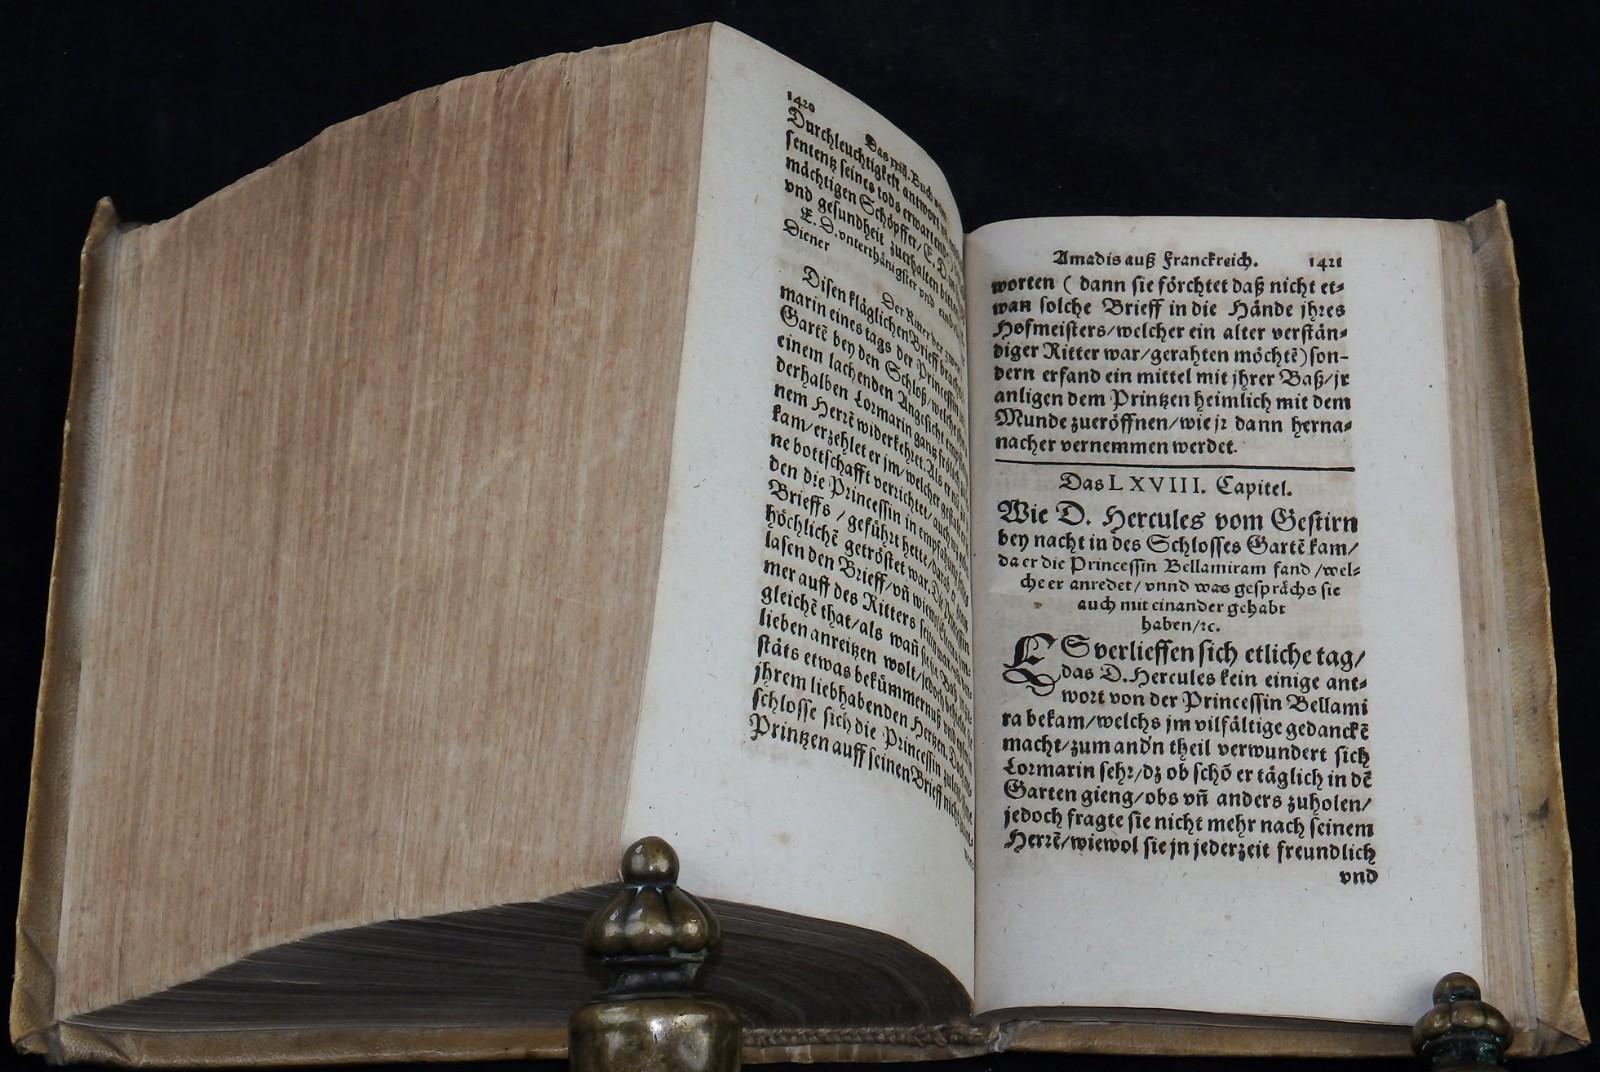 1420
Durchleuchtigkeit antwort
sententz seines tods erwartend
mächtigen Schöpffer / E. D. in
vnd gesundheit zuerhalten bitten
E. D. vnterthänigster vnd
Diener
Der Ritter der zwen
Disen kläglichen Brieff bracht
marin eines tags der Princessin
Gartē bey den Schloß / welche
einem lachenden Angesicht
derhalben Lormarin gantz frölich
nem Herrē widerkehret. Als er
kam / erzehlet er jm / welcher
ne bottschafft verrichtet / auch
den die Princessin in empfahung
Brieffs / geführt hette / darab
höchlichē getröstet war. Die Princessin
lasen den Brieff / vñ wiewol
mer auff des Ritters seiten war
gleichē that / als wañ sein
lieben anreitzen wolt / jedoch
stäts etwas bekümmernuß vnd
jhrem liebhabenden Hertzen.
schlosse sich die Princessin
Printzen auff seinen Brieff nicht
Amadis auß Franckreich. 1421
worten ( dann sie förchtet daß nicht et-
wan solche Brieff in die Hände jhres
Hofmeisters / welcher ein alter verstän-
diger Ritter war / gerahten möchtē) son-
dern erfand ein mittel mit jhrer Baß / jr
anligen dem Printzen heimlich mit dem
Munde zueröffnen / wie jr dann herna-
nacher vernemmen werdet.
Das LXVIII. Capitel.
Wie D. Hercules vom Gestirn
bey nacht in des Schlosses Gartē kam /
da er die Princessin Bellamiram fand / wel-
che er anredet / vnnd was gesprächs sie
auch mit einander gehabt
haben / ꝛc.
ES verlieffen sich etliche tag /
das D. Hercules kein einige ant-
wort von der Princessin Bellami
ra bekam / welchs jm vilfältige gedanckē
macht / zum and'n theil verwundert sich
Lormarin sehr / dz ob schō er täglich in dē
Garten gieng / obs vñ anders zuholen /
jedoch fragte sie nicht mehr nach seinem
Herrē / wiewol sie jn jederzeit freundlich
vnd